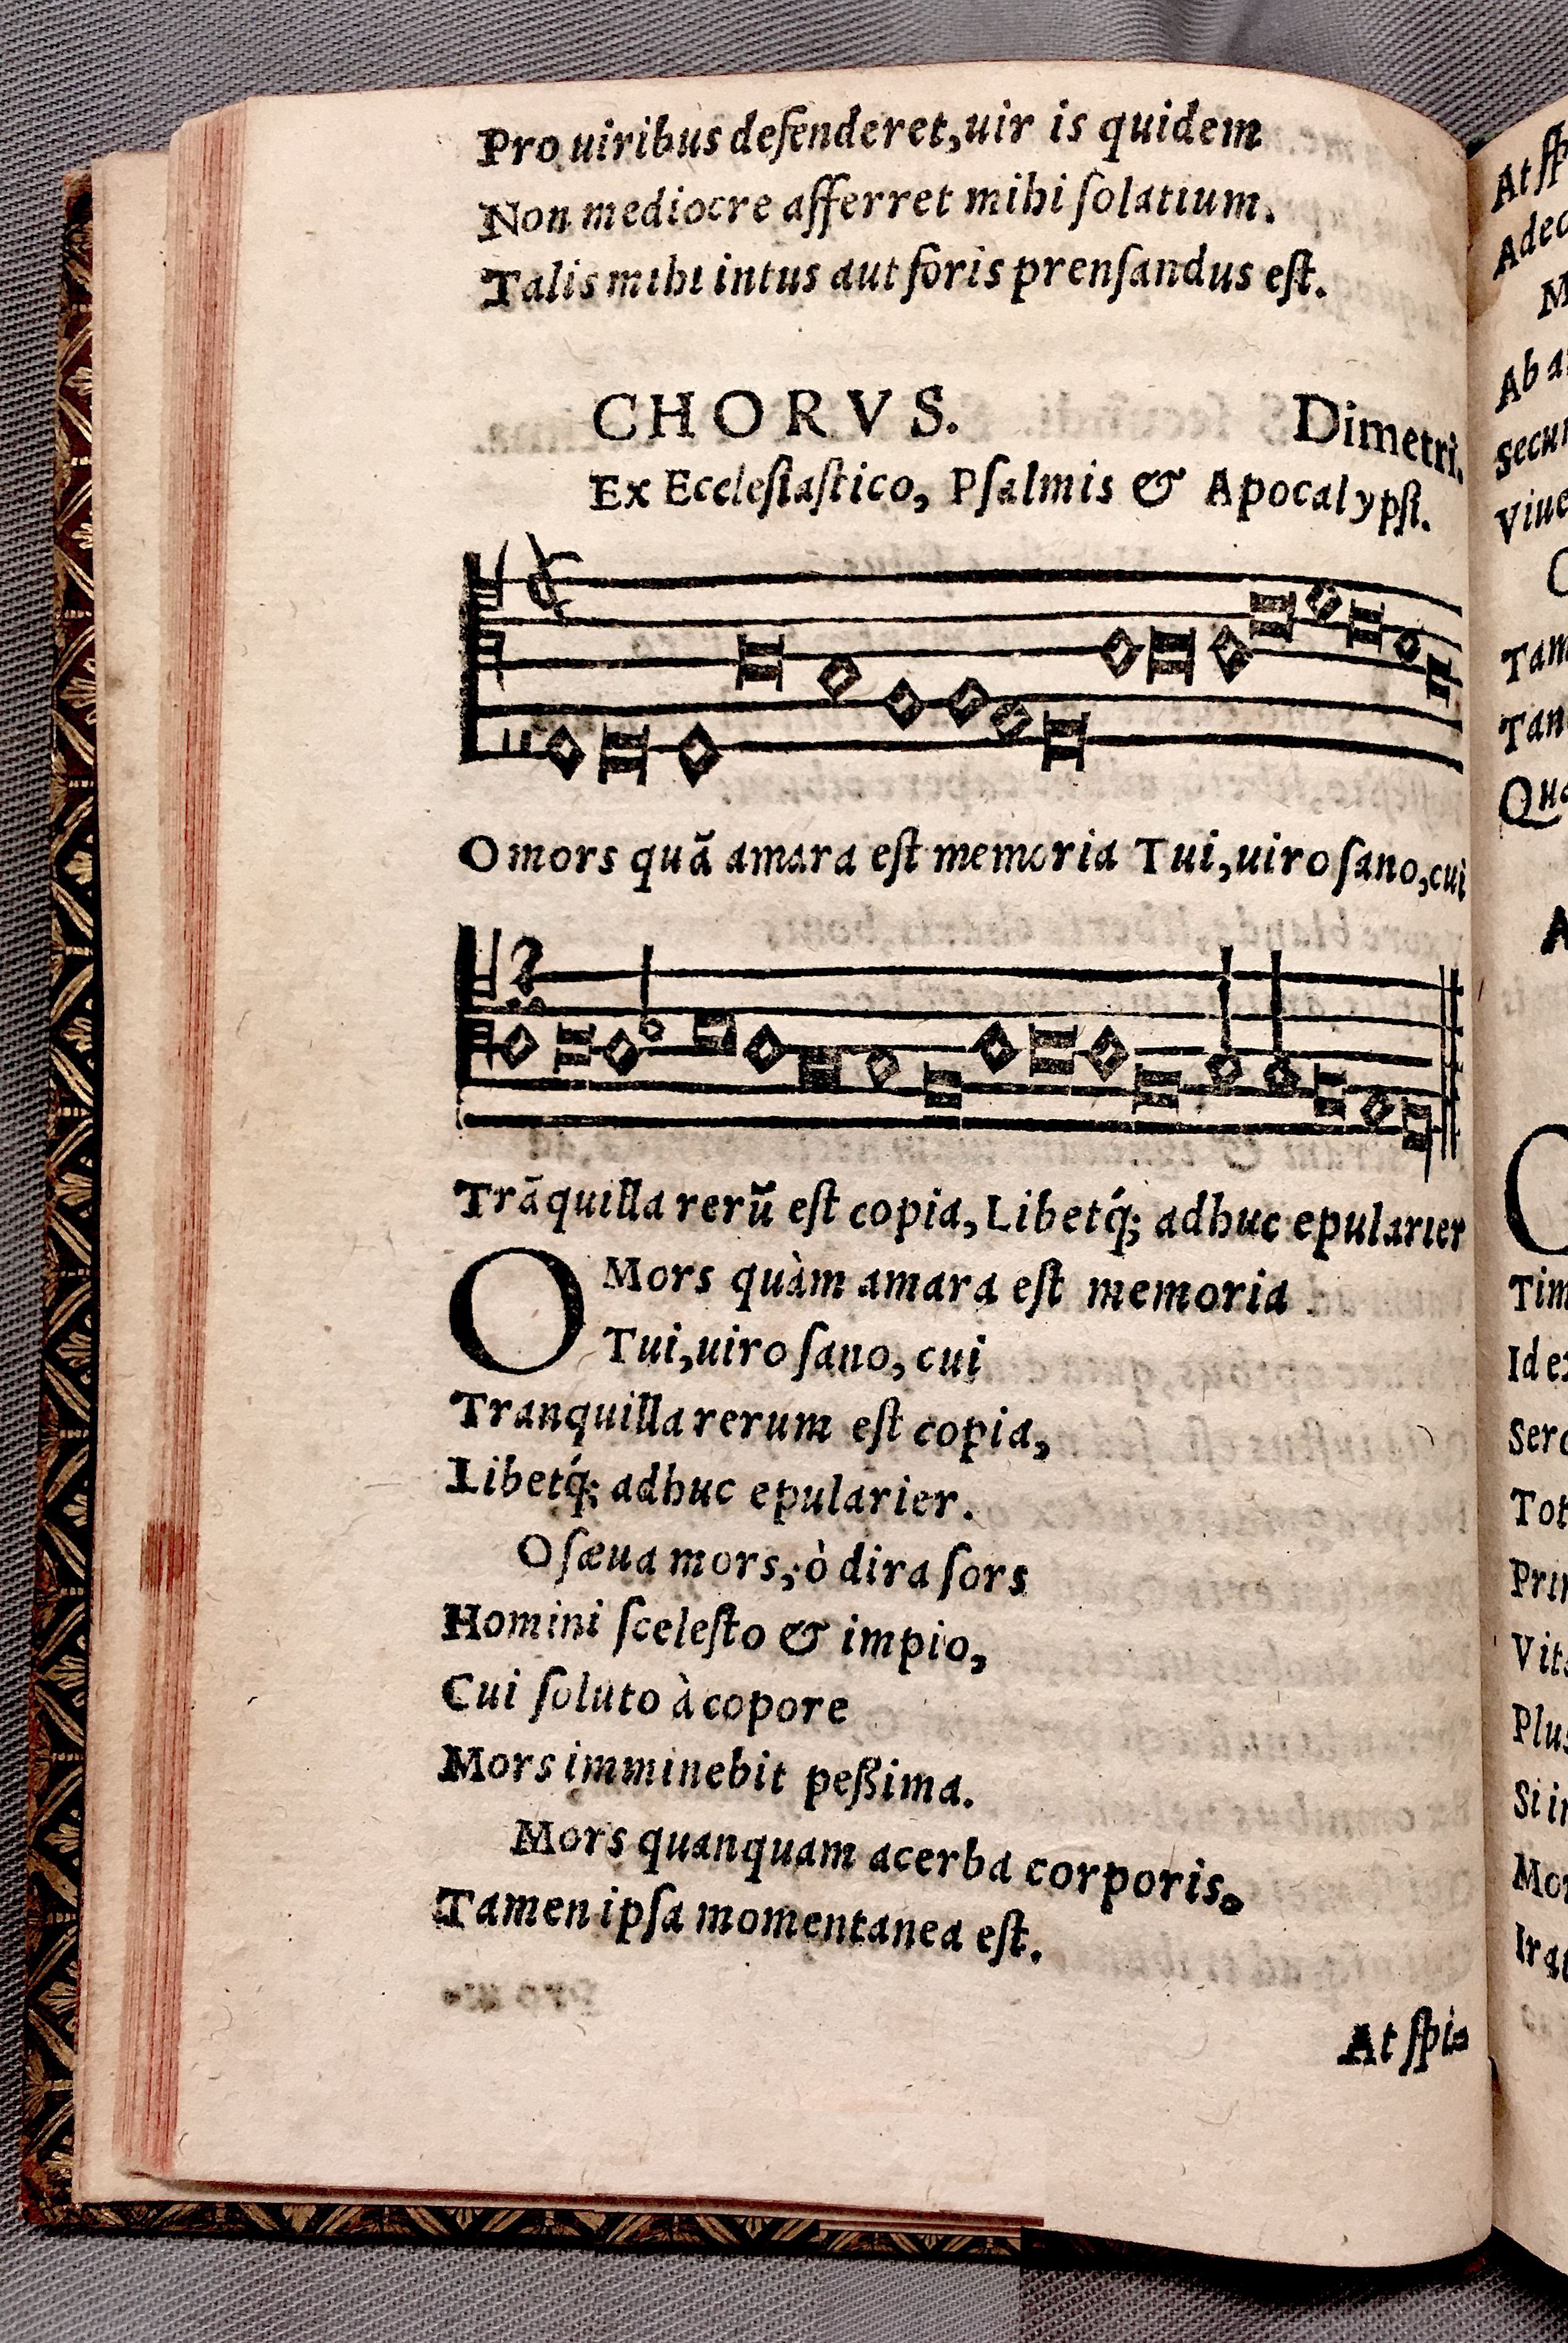 Pro uiribus defenderet,uir is quidem
Non mediocre afferret mihi ſolatium.
Talis mihi intus aut foris prenſandus eſt.
CHORVS. Dimetri.
Ex Eccleſiaſtico, Pſalmis & Apocalypſi.
O mors quã amara eſt memoria Tui,uiro ſano,cui
Trãquilla rerũ eſt copia, Libetq́; adhuc epularier
O Mors quàm amara eſt memoria
Tui,uiro ſano, cui
Tranquilla rerum eſt copia,
Libetq́; adhuc epularier.
O ſæua mors, ò dira ſors
Homini ſceleſto & impio,
Cui ſoluto à copore
Mors imminebit peßima.
Mors quanquam acerba corporis.
Tamen ipſa momentanea eſt.
At ſpi-
At
Adeo
Ab
Secun
Viue
Tam
Tan
Tim
Id
Sero
Tot
Vita
Plus
Si
Mor
Irat